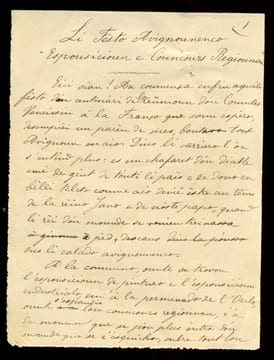 1
Li Festo Avignounenco
Espousicioun e Councours Regiounau
Eici sian! An coumença enfin aqueli
fèsto dóu centenàri de l'unioun dóu Coumtat
Venessin à la Franço que soun espèro,
despièi un parèu de mes, tout
Avignoun en aio. Dins li carriero l'on
s'entend plus: es un chafaret dóu diable
emé de gènt de touti li païs e de
bèlli coume aco devié èstre au tèms
de la rèino Jano e de nòsti papo, quand
li rèi dóu mounde
à pèd, descaus dins la
sus li calado avignounenco.
A la coumuno, ounte se trovon
l'espousicioun de pinturo e l'espousicioun
industrialo, à la permenado de l'Oulo
ounte s'espandis lou councours regiounau, i'a
de mounde que se pòu plus intra
mounde que se i'acoquino, subre-tout lou